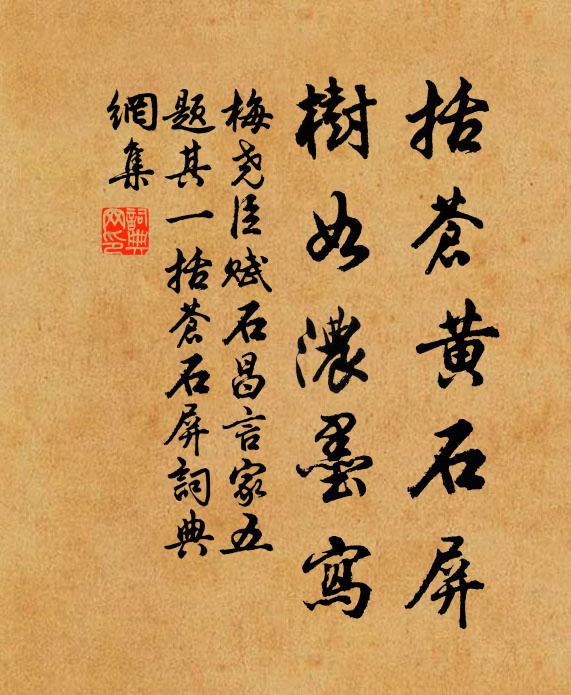 括蒼黄石屏
樹如濃墨寫
梅尭臣賦石昌言家五
題其一括蒼石屏詞典
網集
詞典
网印